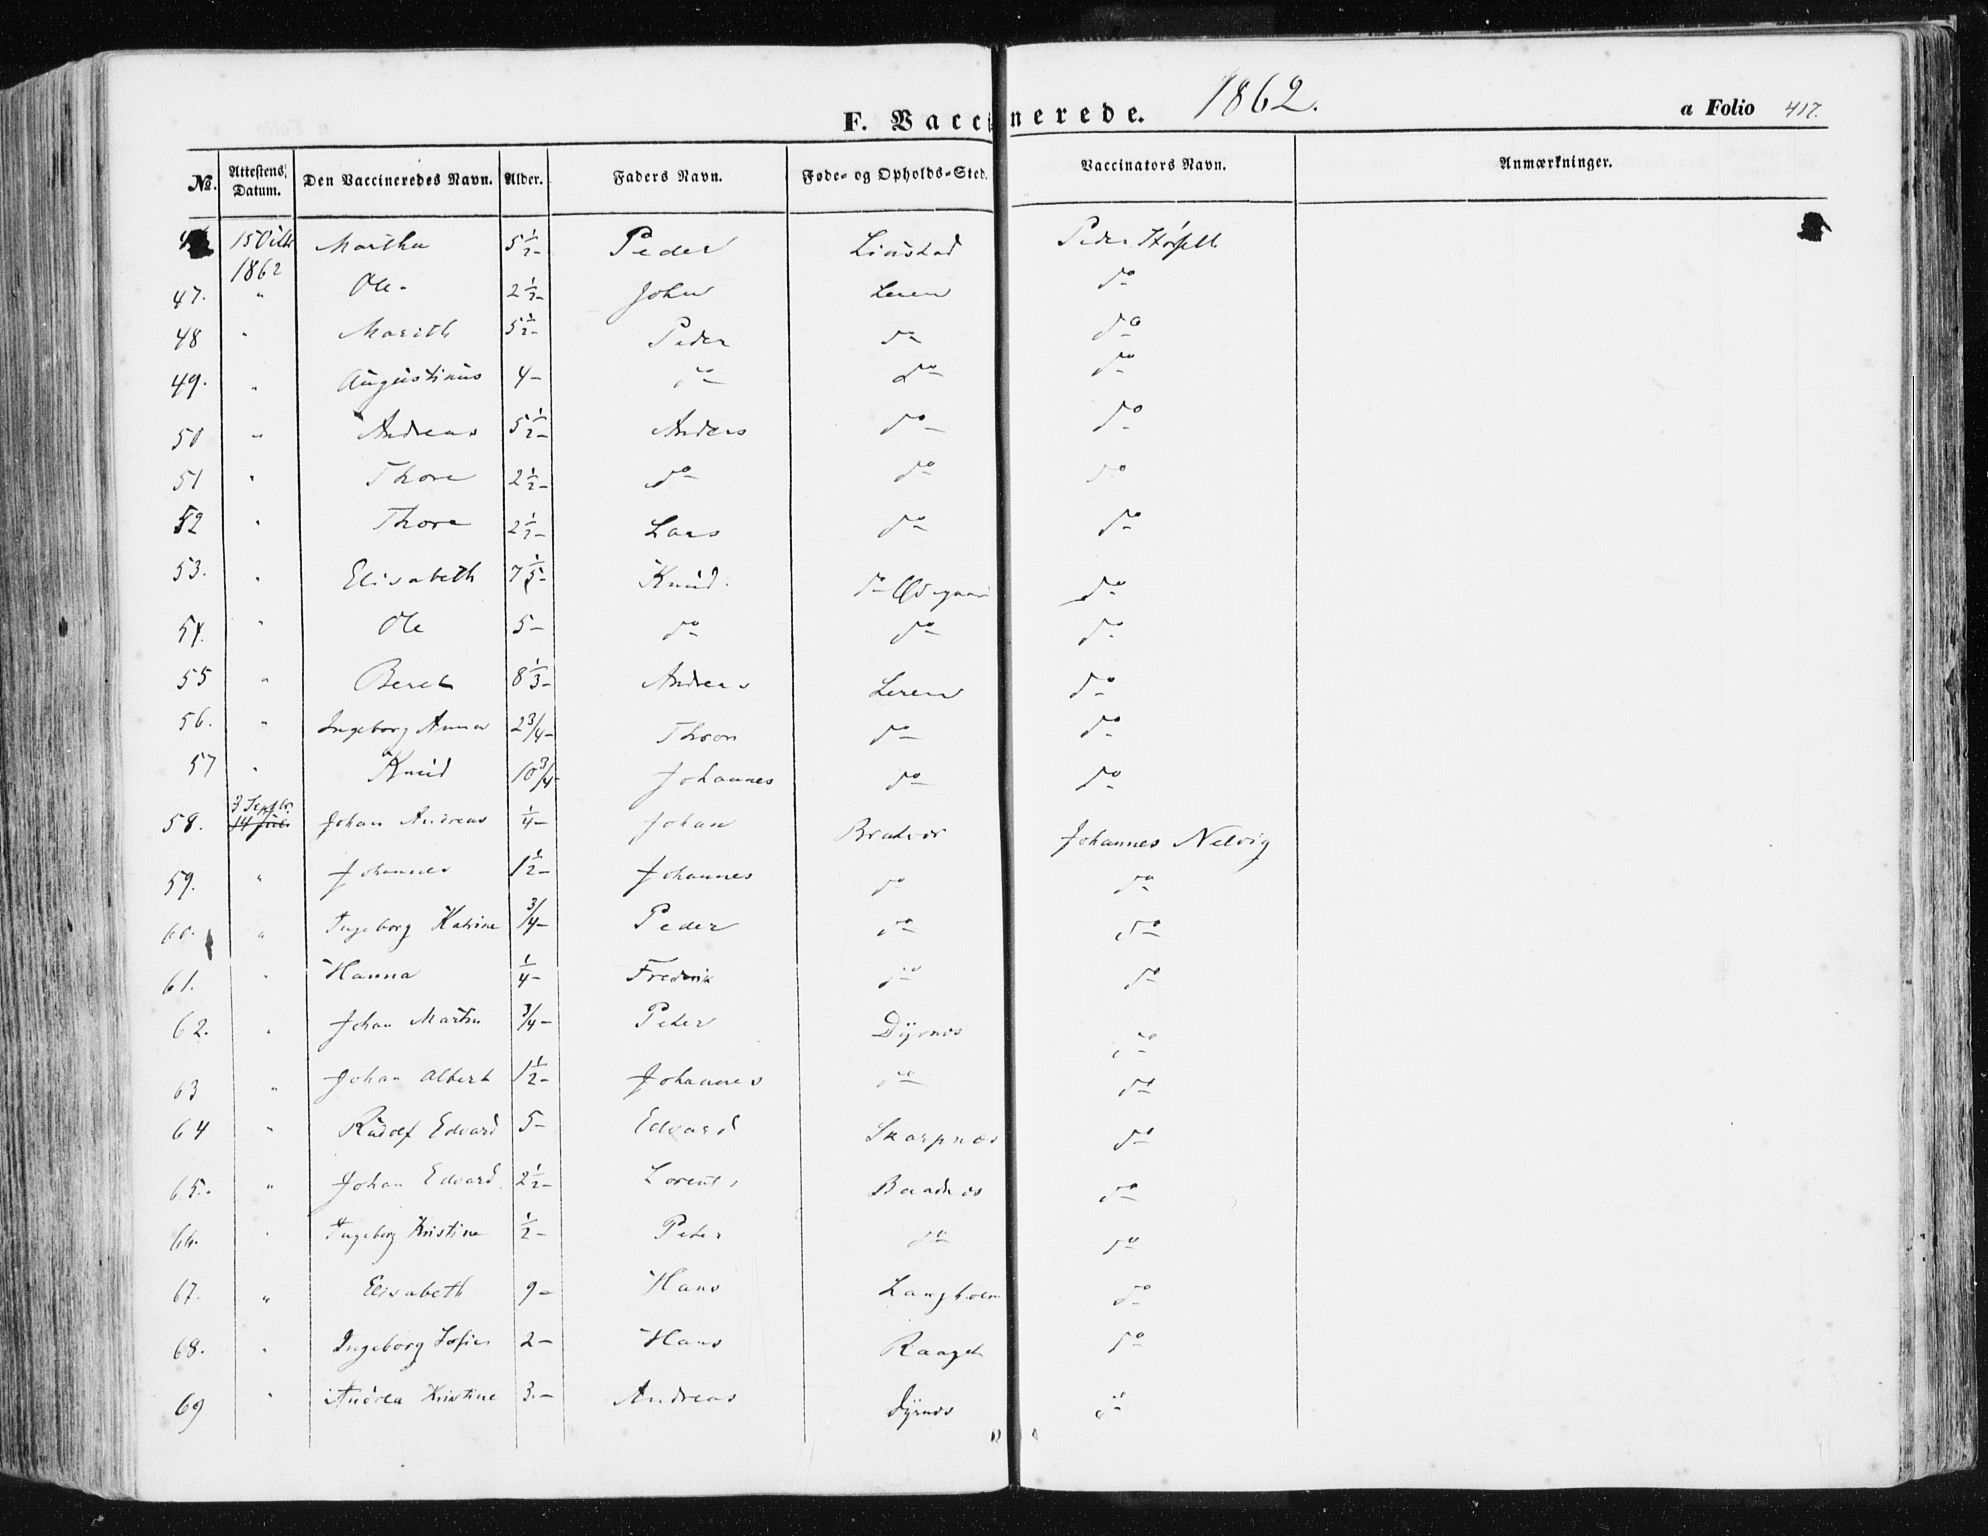 F. Vaccinerede. 1862. a Folio 417.
No. Attestens Datum. Den Vaccineredes Navn. Alder. Faders Navn. Føde- og Opholds-Sted. Vaccinators Navn. Anmærkninger.
15 1862 Martha 5 1/2 Peder Peder
47. " Ole 2 1/2 John Leren do
48 " Marith 5 1/2 Peder do do
49. " Augustinus 4 do do do
50 " Andreas 5 1/2 Anders do do
51 " Thore 2 1/2 do do do
52 " Thore 2 1/2 Lars do do
53. " Elisabeth 7 1/3 Knud do do
54. " Ole 5 do do do
55 " Beret 8 1/3 Andreas Leren do
56. " Ingeborg Anna 2 3/4 Thoon do do
57 " Knud 10 3/4 Johannes do do
58. 3 Septbr 14 Juli Johan Andreas 1/4 Johan Bratvær Johannes Nelvig
59. " Johannes 1 1/2 Johannes do do
60. " Ingeborg Katrine 3/4 Peder do do
61. " Hanna 1/4 Frederik do do
62. " Johan Martin 3/4 Peter Dyrnes do
63 " Johan Albert 1 1/2 Johannes do do
64 " Rudolf Edvard 5 Edvard Skarpnes do
65. " Johan Edvard 2 1/2 Lorents do
66. " Ingeborg Kristine 1/2 Peter do do
67. " Elisabeth 9 Hans Langholm do
68. " Ingeborg Sofie 2 Hans do
69 " Andrea Kristine 3 Andreas Dyrnes do